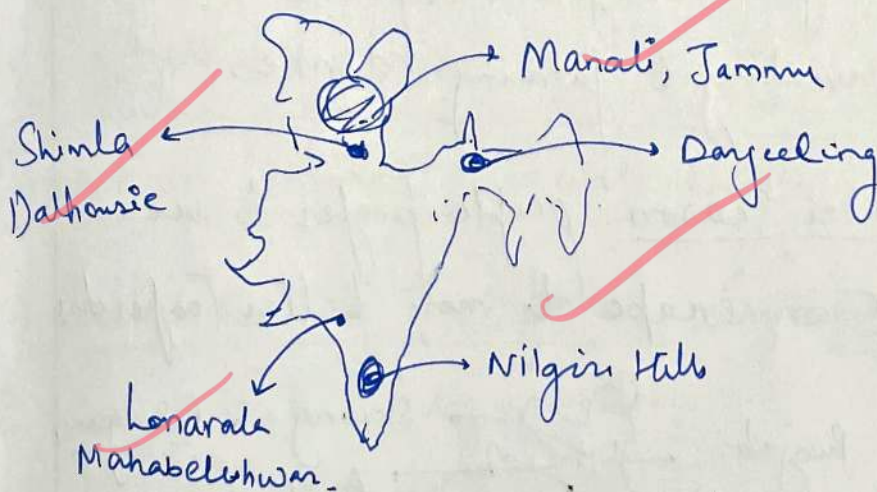 Manali, Jammu
Shimla
Dalhousie
Darjeeling
Nilgiri Hills
Lonavala
Mahabeleshwar.